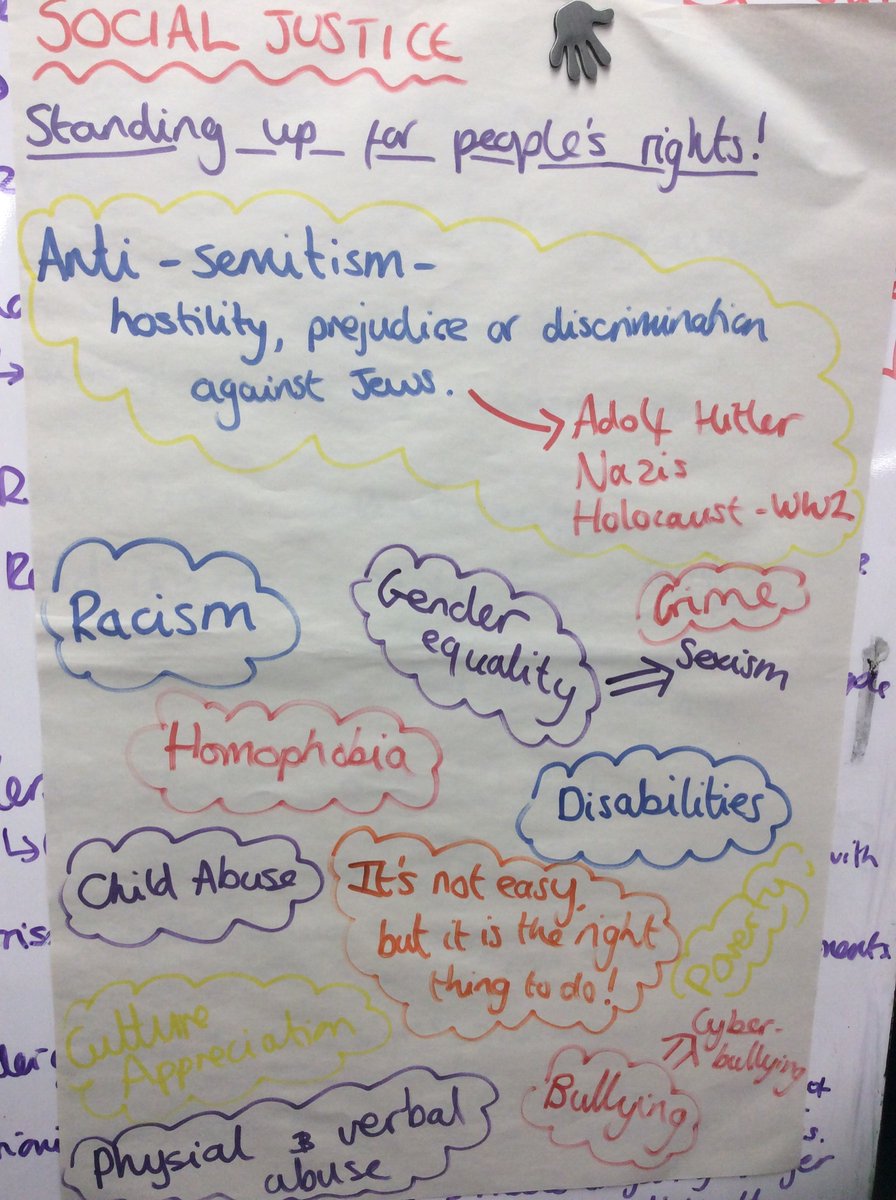 SOCIAL JUSTICE
Standing up for people's rights!
Anti-semitism-
hostility, prejudice or discrimination
against Jews.
Adolf Hitler
Nazis
Holocaust-WW2
Racism
Gender
equality
Crime
Sexism
Homophobia
Disabilities
Child Abuse
It's not easy,
but it is the right
thing to do!
Poverty
Culture
Appreciation
Cyber-
bullying
Bullying
physial & verbal
abuse
with